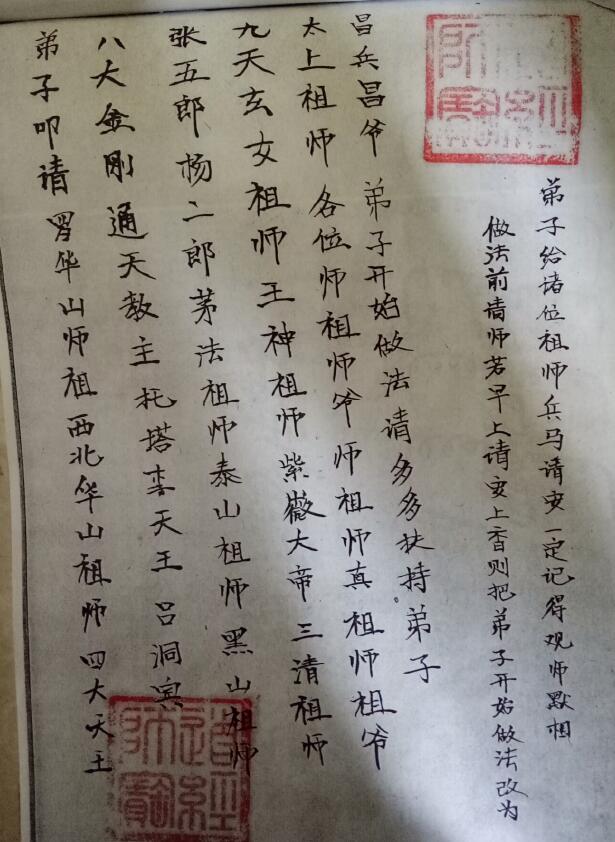 弟子叩请罗华山师祖西北华山祖师四大天王
八大金刚通天教主托塔李天王吕洞宾
张五郎杨二郎茅法祖师泰山祖师黑山祖师
九天玄女祖师王神祖师紫薇大帝三清祖师
太上祖师各位师祖师爷师祖师真祖师祖爷
昌兵昌爷弟子开始做法请多多扶持弟子
做法前请师若早上请安上香则把弟子开始做法改为
弟子给诸位祖师兵马请安一定记得观师默相
道經
師寶
道經
師寶